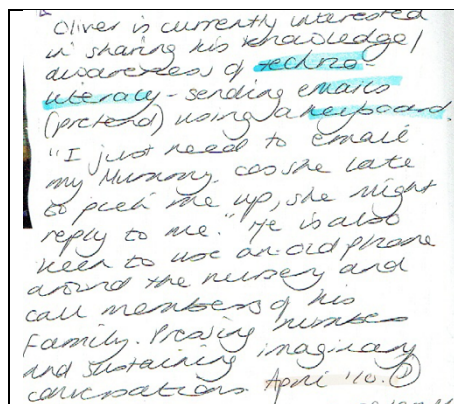 Oliver is currently interested
in sharing his knowledge/
awareness of techno-
literacy - sending emails
(pretend) using a keyboard.
"I just need to email
my Mummy. cos she late
to pick me up, she might
reply to me." He is also
keen to use an old phone
around the nursery and
call members of his
family. Pressing numbers
and sustaining imaginary
conversations. April '10.